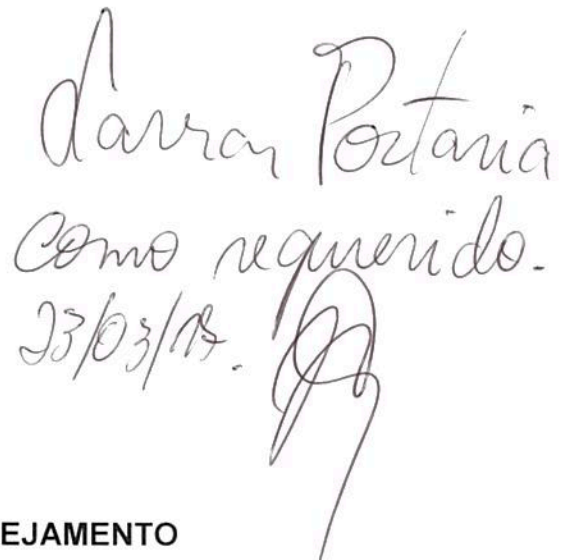 Lavrar Portaria
como requerido.
23/03/17.
EJAMENTO